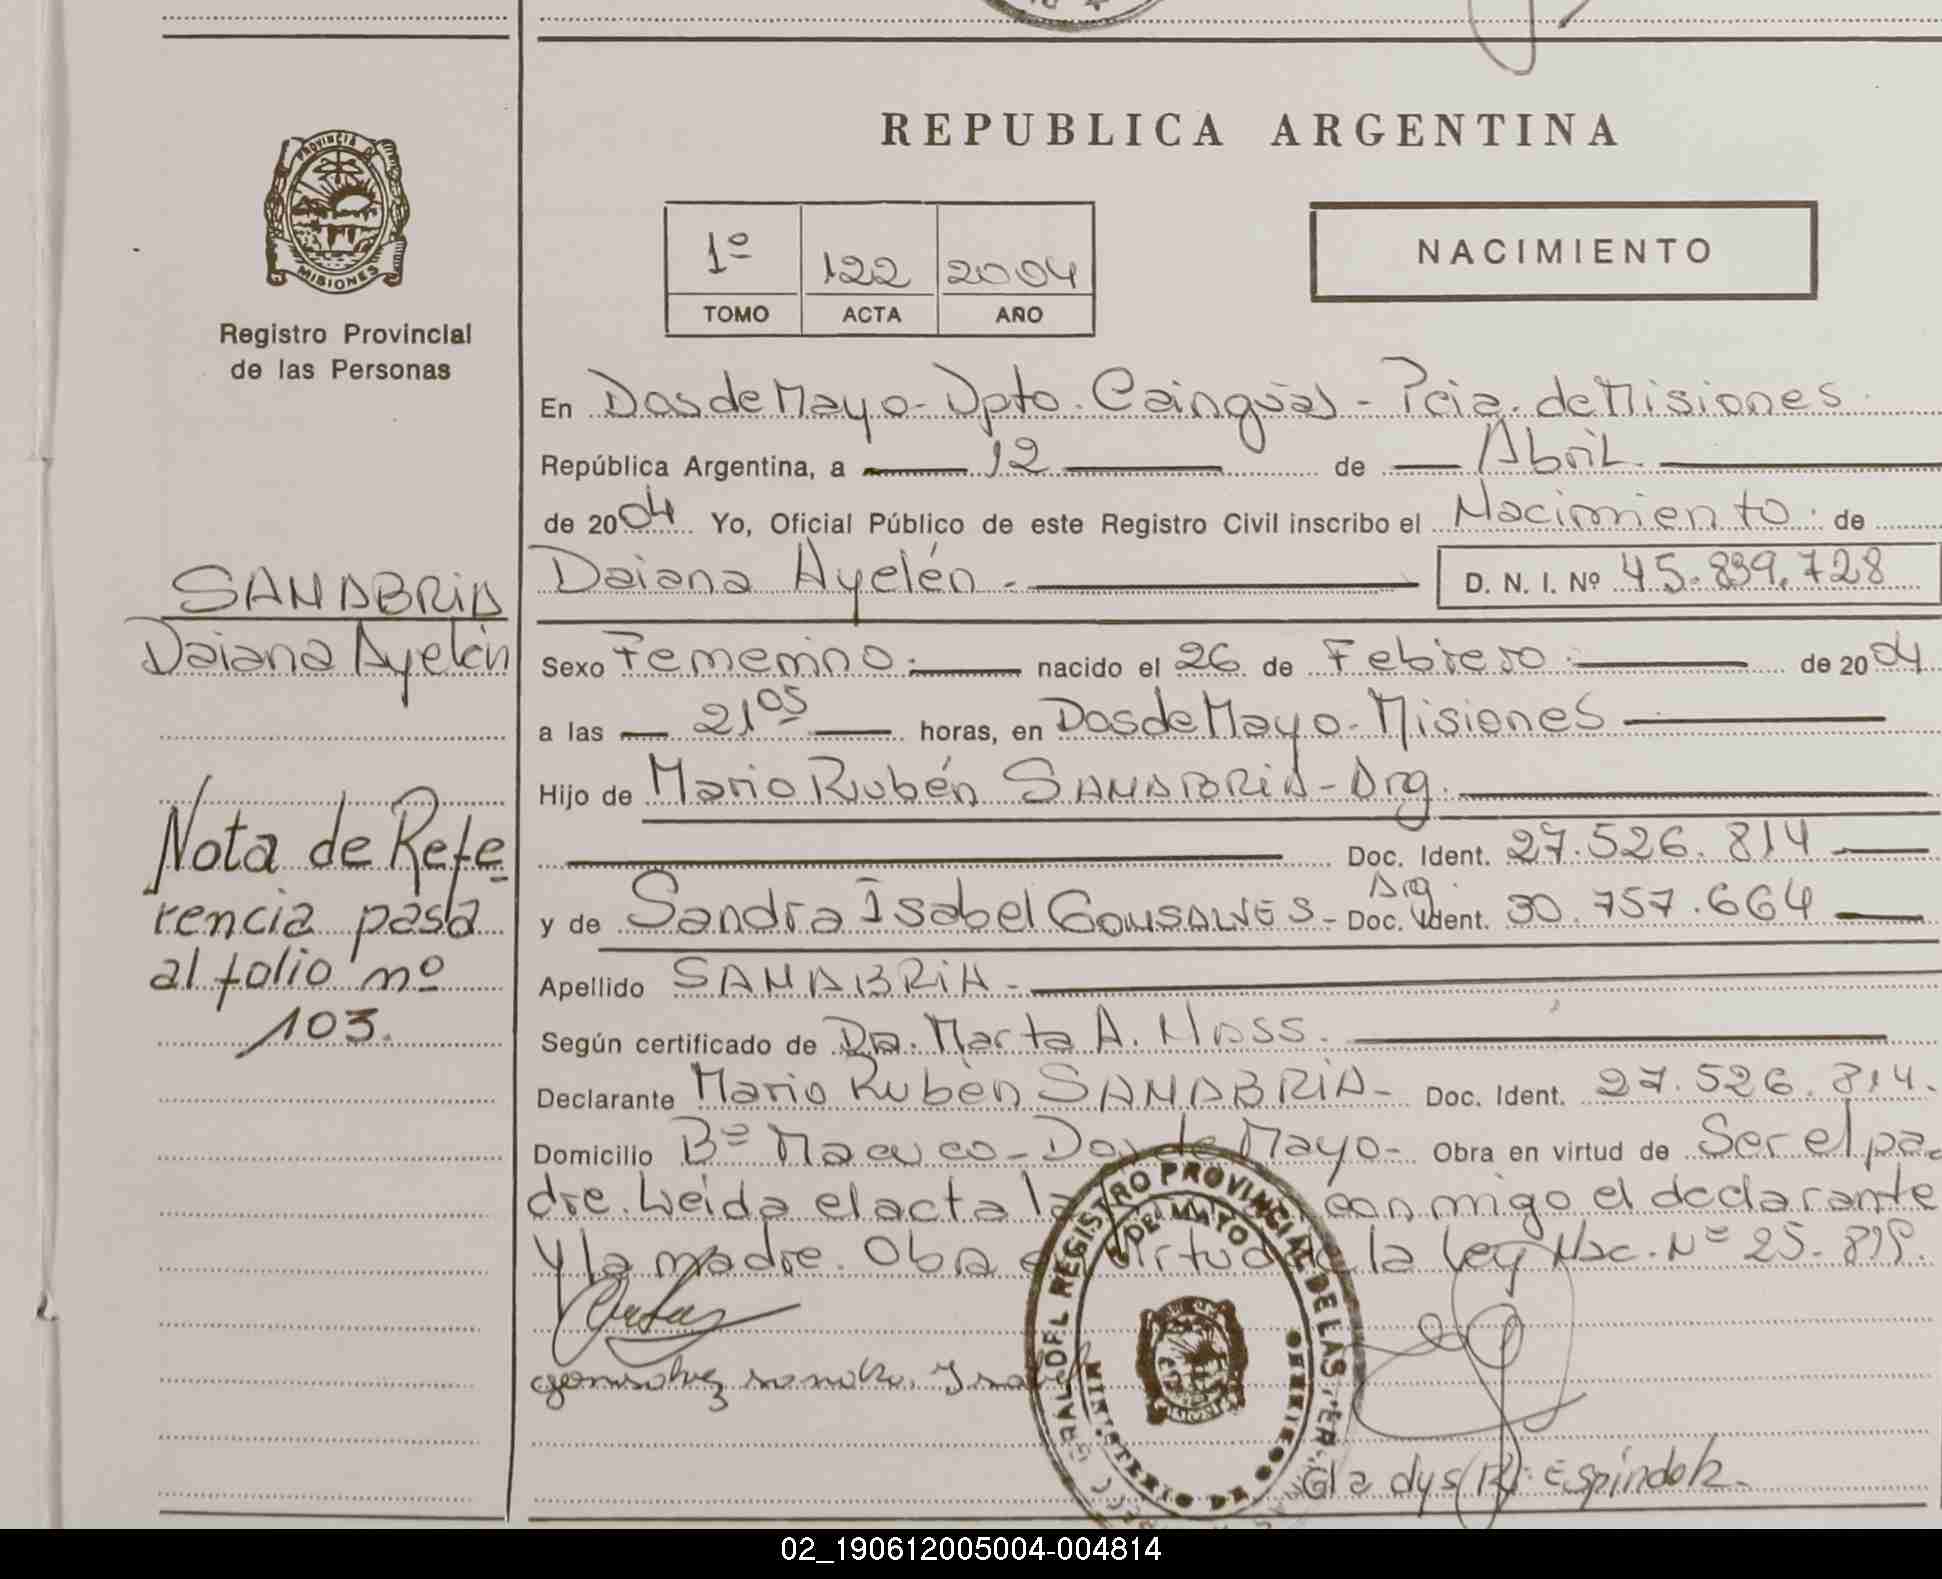 REPUBLICA ARGENTINA
PROVINCIA DE
MISIONES
Registro Provincial
de las Personas
1º 122 2004
TOMO ACTA AÑO
NACIMIENTO
En Dos de Mayo - Dpto. Cainguás - Pcia. de Misiones
República Argentina, a 12 de Abril
de 2004 Yo, Oficial Público de este Registro Civil inscribo el Nacimiento de
Daiana Ayelén - D. N. I. Nº 45.839.728
Sexo Femenino. nacido el 26 de Febrero de 2004
a las 21 05 horas, en Dos de Mayo - Misiones
Hijo de Mario Rubén SANABRIA - Arg.
Doc. Ident. 27.526.814
Arg.
y de Sandra Isabel GONSALVES - Doc. Ident. 30.757.664
Apellido SANABRIA -
Según certificado de Dra. Marta A.
Declarante Mario Rubén SANABRIA - Doc. Ident. 27.526.814.
Domicilio Bº Macuco - Dos de Mayo - Obra en virtud de Ser el pa-
dre. Leida el acta la conmigo el declarante
y la madre. Obra en virtud de la Ley Nac. Nº 25.819.
SANABRIA
Daiana Ayelén
Nota de Refe-
rencia pasa
al folio nº
103.
REGISTRO PROVINCIAL DE LAS
DE MAYO
MINISTERIO DE GOBIERNO
Gladys R. Espindola
02_190612005004-004814